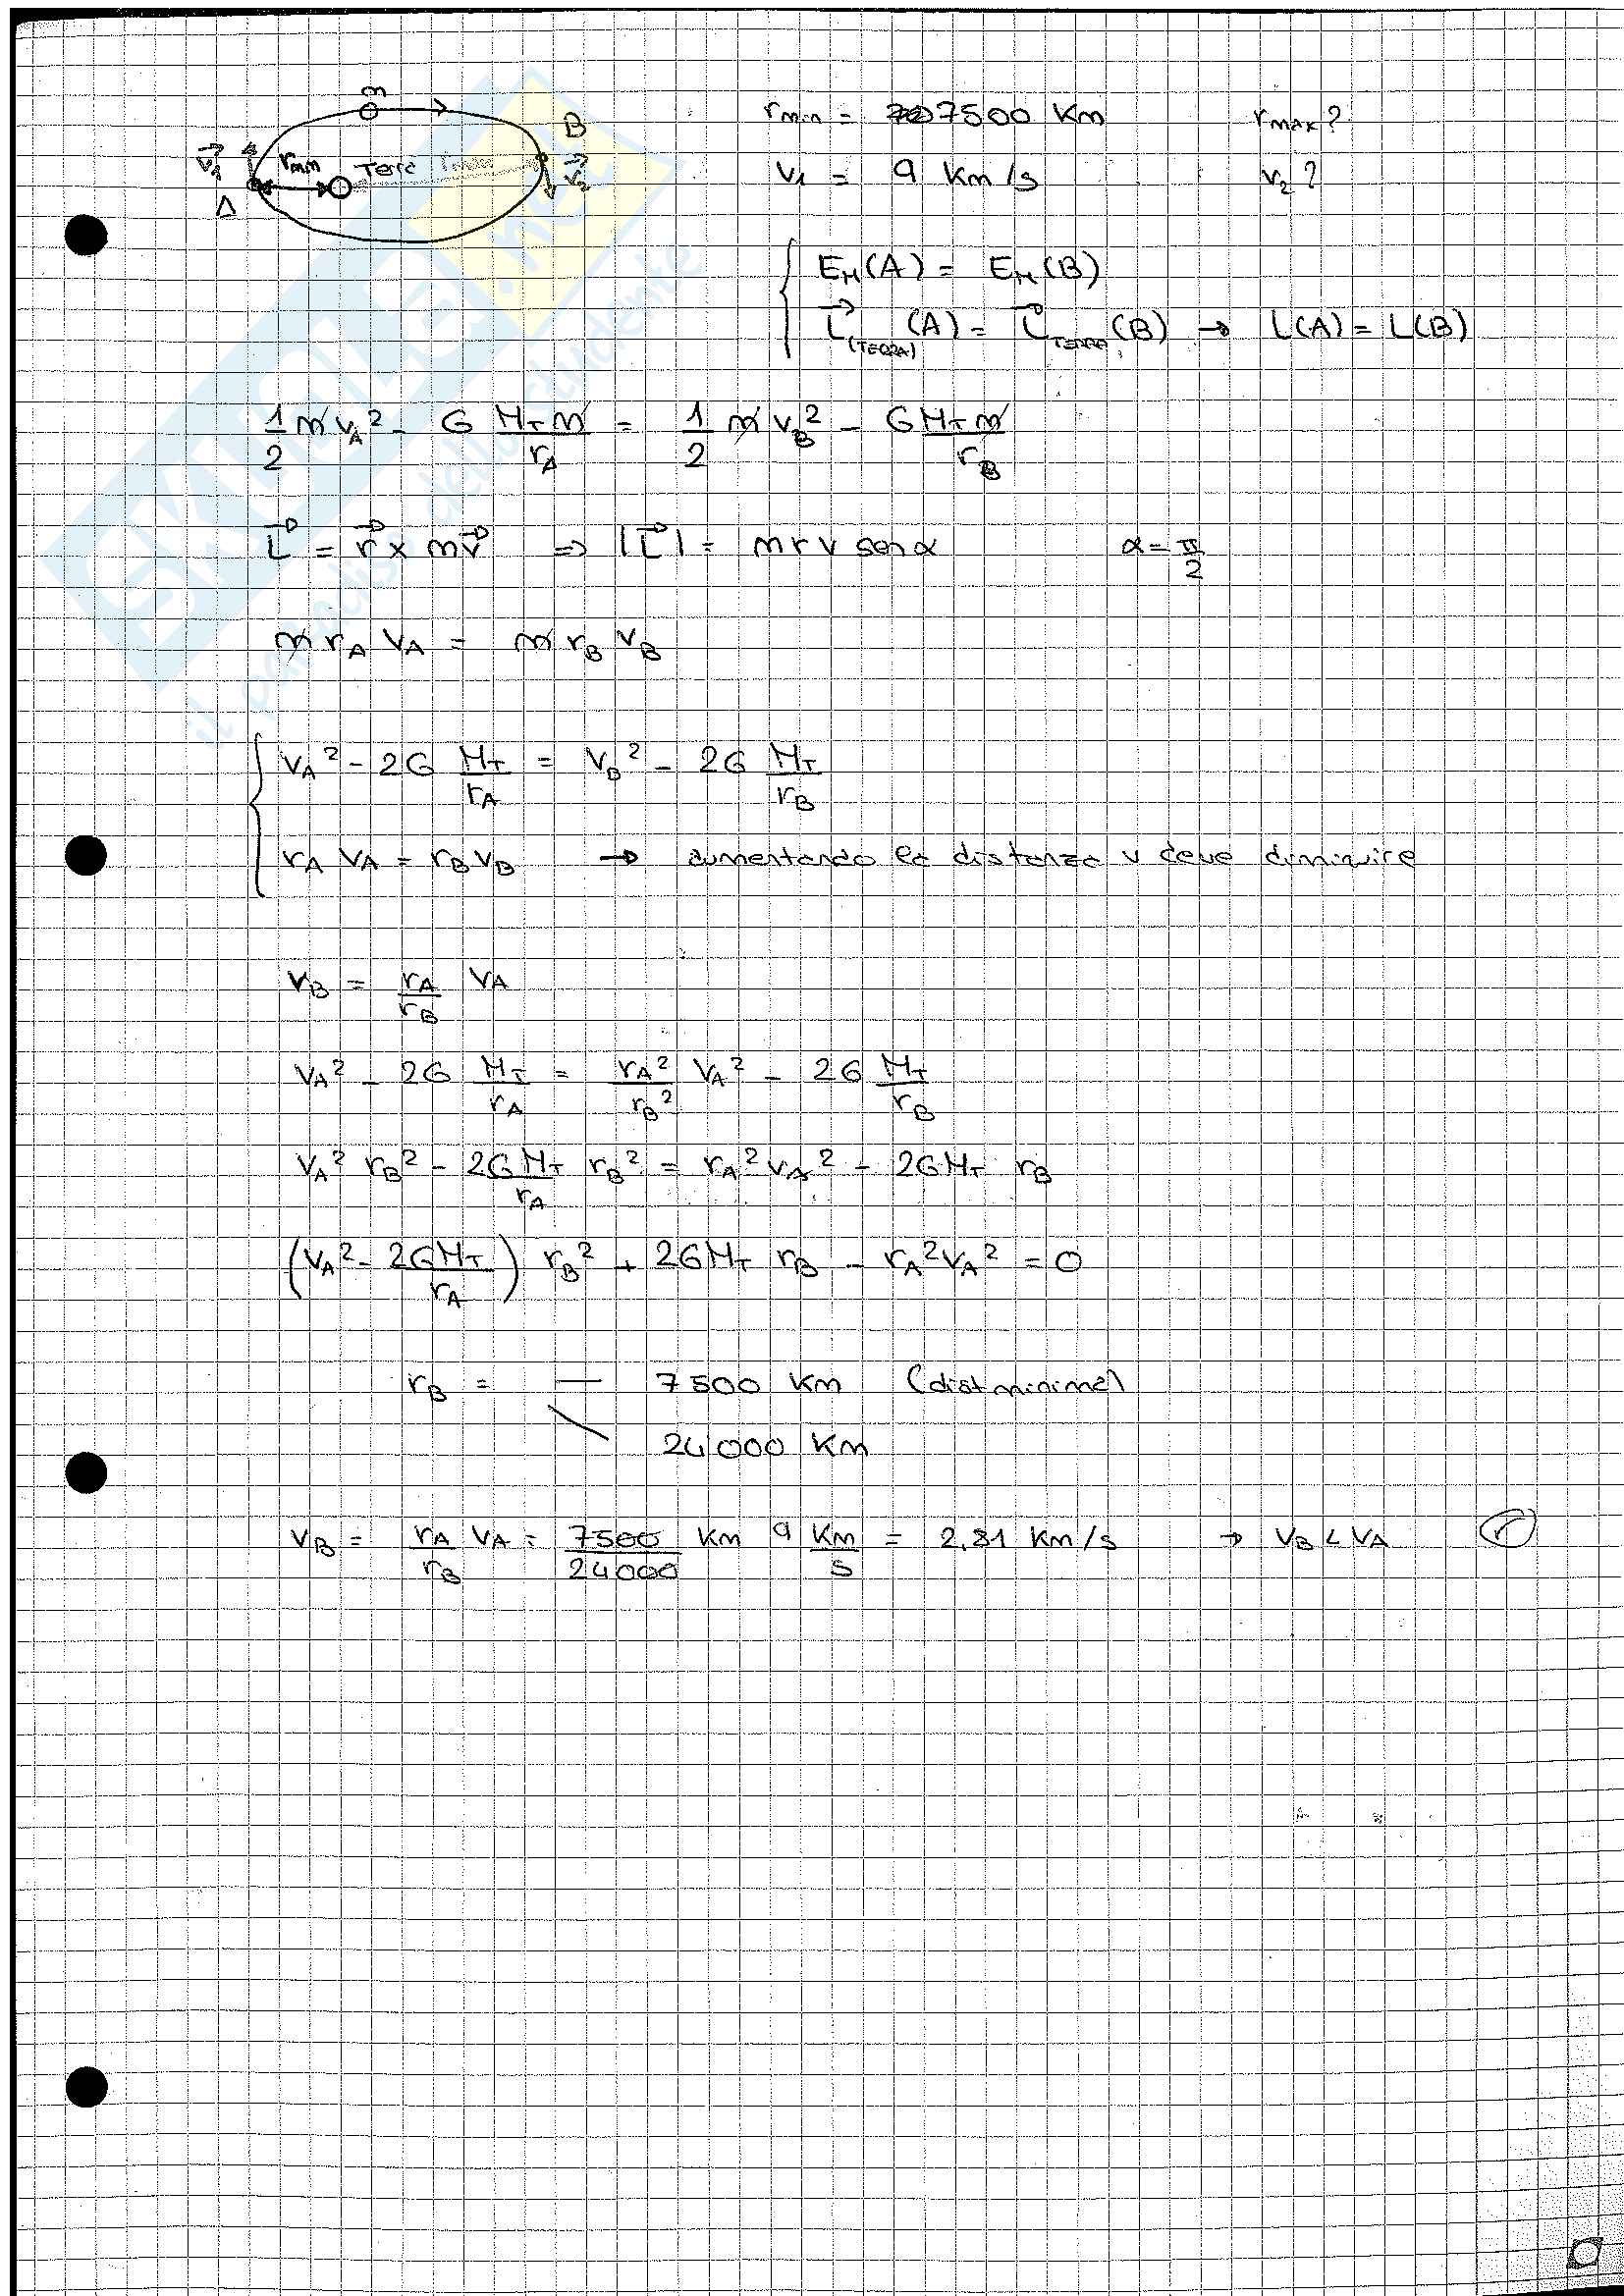 m
B
v⃗₁ r_min Terra r_max v⃗₂
A
r_min = 7500 Km r_MAX?
v₁ = 9 Km/s v₂?
{ E_M(A) = E_M(B)
L⃗_(TERRA) (A) = L⃗_TERRA (B) → L(A) = L(B)
1/2 m v_A² - G M_T m / r_A = 1/2 m v_B² - G M_T m / r_B
L⃗ = r⃗ x m v⃗ ⇒ |L⃗| = m r v sen α α = π/2
m r_A v_A = m r_B v_B
{ v_A² - 2G M_T / r_A = v_B² - 2G M_T / r_B
r_A v_A = r_B v_B → aumentando la distanza v deve diminuire
v_B = r_A / r_B v_A
v_A² - 2G M_T / r_A = r_A² / r_B² v_A² - 2G M_T / r_B
v_A² r_B² - 2G M_T / r_A r_B² = r_A² v_A² - 2G M_T r_B
(v_A² - 2G M_T / r_A) r_B² + 2G M_T r_B - r_A² v_A² = 0
r_B = 7500 Km (dist minima)
24000 Km
v_B = r_A / r_B v_A = 7500 / 24000 Km 9 Km/s = 2,81 Km/s → v_B < v_A
SKUOLA.net
il paradiso dello studente